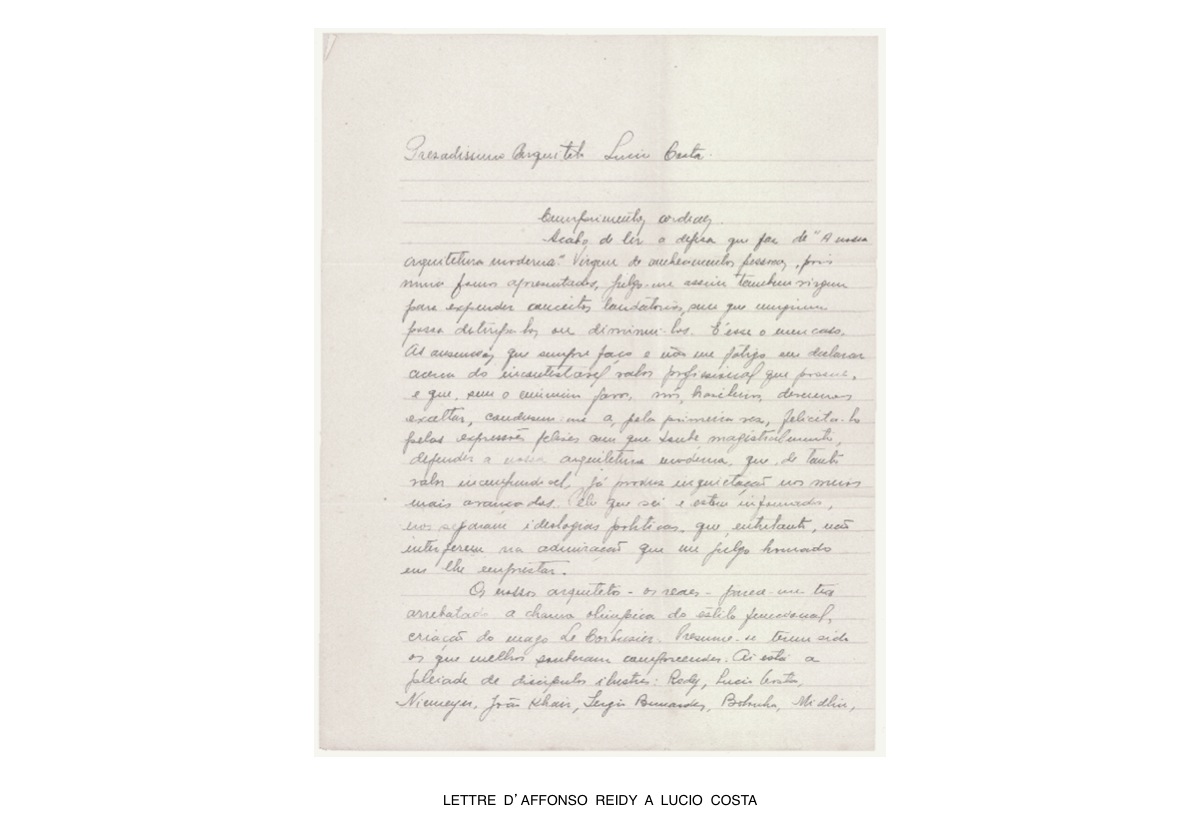 Prezadissimo Arquiteto Lucio Costa.
Cumprimentos cordeaes
Acabo de ler a defesa que faz de "A nossa
arquitetura moderna." Virgem de conhecimentos pessoaes, pois
nunca fomos apresentados, julgo-me assim tambem virgem
para expender conceitos laudatorios, sem que ninguem
possa deturpa-los ou diminui-los. É esse o meu caso.
As que sempre faço e não me fatigo em declarar
acerca do incontestavel valor profissional que possue,
e que, sem o minimo favor, nós, brasileiros, devemos
exaltar, conduzem-me a, pela primeira vez, felicita-lo
pelas expressões felizes com que soube, magistralmente,
defender a nossa arquitetura moderna, que, de tanto
valor já produz inquietação nos meios
mais avançados. Pelo que sei e estou informado,
nos separam ideologias politicas, que, entretanto, não
interferem na admiração que me julgo honrado
em lhe emprestar.
Os nossos arquitetos - os reaes - parece-me ter
arrebatado a chama olimpica do estilo funcional,
criação do mago Le Corbusier. Presume-se terem sido
os que melhor souberam compreender. Ai está a
pleiade de discipulos ilustres: Redy, Lucio Costa,
Niemeyer, João Khair, Sergio Bernardes, Midlin,
LETTRE D'AFFONSO REIDY A LUCIO COSTA